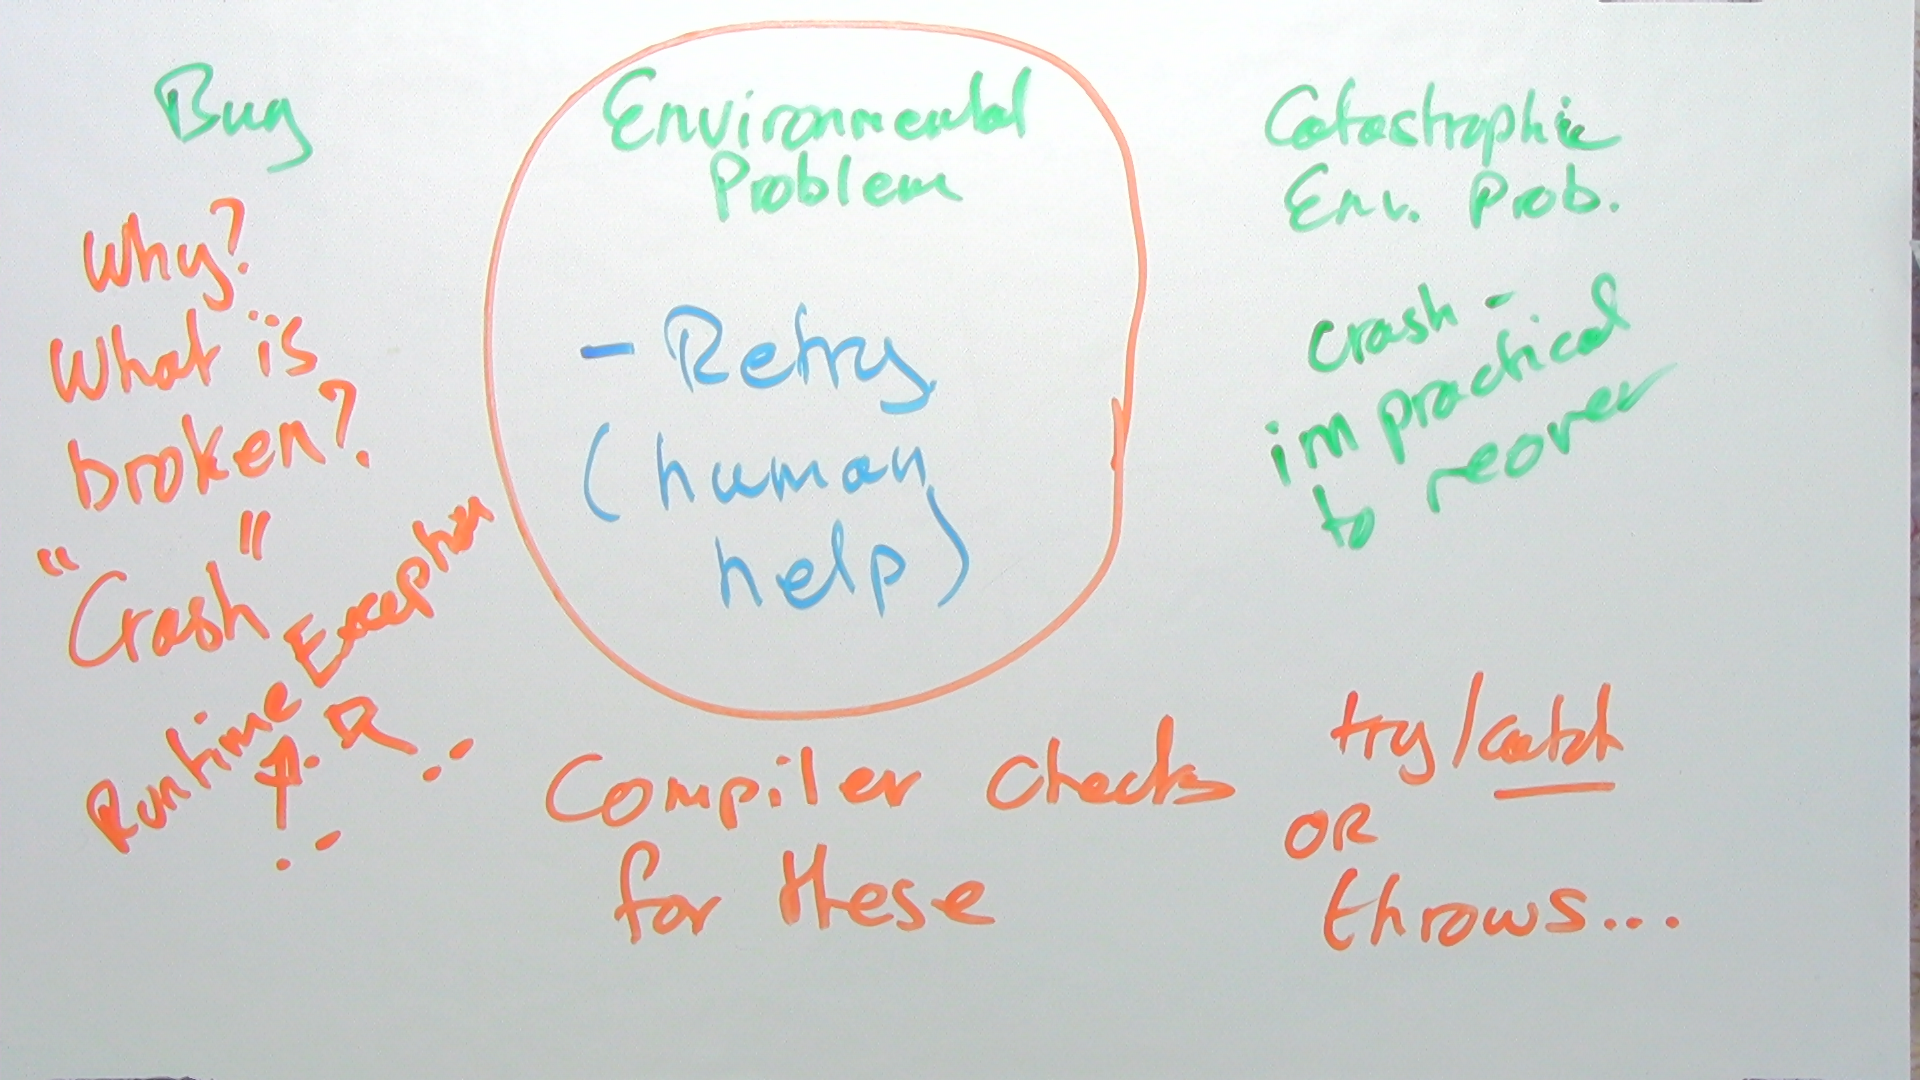 Bug
Why?
What is
broken?
"Crash"
Runtime Exception
Environmental
Problem
- Retry
(human
help)
Compiler Checks
for these
Catastrophic
Env. Prob.
crash -
impractical
to reover
try/catch
OR
throws...